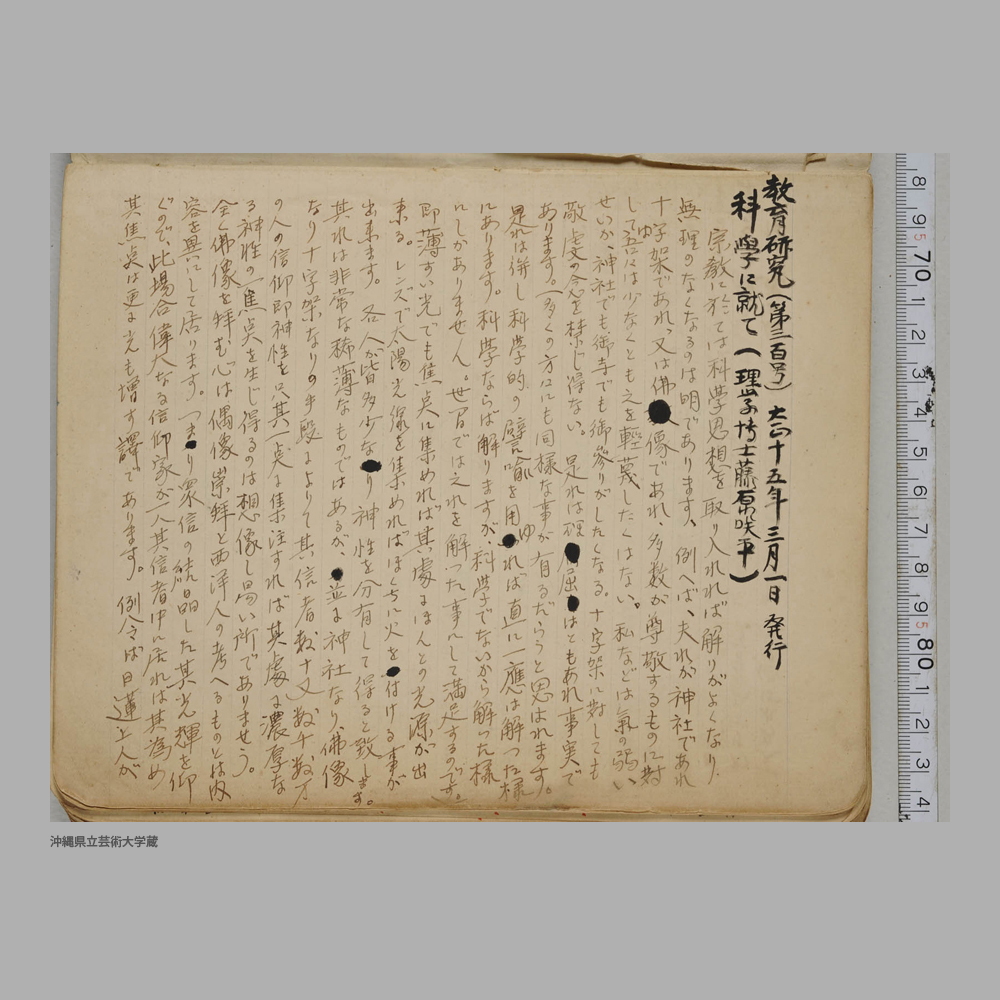 教育研究(第三百号) 大正十五年三月一日発行
科學に就て(理学博士藤原咲平)
宗教に於ては科學思想を取り入れれば解りがよくなり
無理のなくなるのは明であります、例へば、夫れが神社であれ
十字架であれ、又は佛像であれ、多数が尊敬するものに対
して吾々は少なくとも之を軽蔑したくはない。私などは氣の弱い
せいか、神社でも御寺でも御参りがしたくなる。十字架に対しても
敬虔の念を禁じ得ない。是れは理屈はともあれ事実で
あります。(多くの方にも同様な事が有るだらうと思はれます。
是れは併し科学的の譬喩を用ゆれば直に一應は解つた様
にあります。科學ならば解りますが、科学でないから解つた様
にしかありません。世間では之れを解った事にして満足するのです。)
即薄すい光でも焦点に集めれば其處にほんとの光源が出
来る。レンズで太陽光線を集めればほくちに火を付ける事が
出来ます。各人が皆多少なり神性を分有して得ると致します。
其れは非常な稀薄なものではあるが、並に神社なり、佛像
なり十字架なりの手段によりて其信者数十又数千数万
の人の信仰即神性を只其一点に集注すれば其處に濃厚な
る神性の焦点を生じ得るのは想像し易い所でありませう。
全く佛像を拝む心は偶像崇拝と西洋人の考へるものとは内
容を異にして居ります。つまり衆信の結晶した其光輝を仰
ぐので、此場合偉大なる信仰家が一人其信者中に居れば其為め
其焦点は更に光も増す譯であります。例令ば日蓮上人が
8 9 5 70 1 2 3 4 5 6 7 8 9 5 80 1 2 3 4
沖縄県立芸術大学蔵